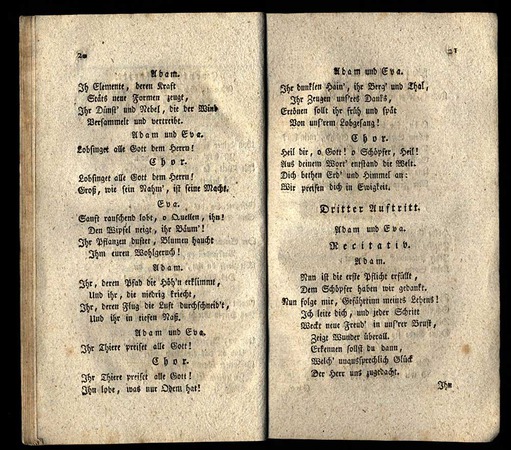 20
Adam.
Ih Elemente, deren Kraft
Stäts neue Formen zeugt,
Ihr Dünst' und Nebel, die der Wind
Versammelt und vertreibt.
Adam und Eva.
Lobsinget alle Gott dem Herrn!
Chor.
Lobsinget alle Gott dem Herrn!
Groß, wie sein Nahm', ist seine Macht.
Eva.
Sanft rauschend lobt, o Quellen, ihn!
Den Wipfel neigt, ihr Bäum'!
Ihr Pflanzen duftet, Blumen haucht
Ihm euren Wohlgeruch!
Adam.
Ihr, deren Pfad die Höh'n erklimmt,
Und ihr, die niedrig kriecht,
Ihr, deren Flug die Luft durchschneid't,
Und ihr in tiefen Naß.
Adam und Eva.
Ihr Thiere preiset alle Gott!
Chor.
Ihr Thiere preiset alle Gott!
Ihn lobe, was nur Odem hat!
21
Adam und Eva.
Ihr dunklen Hain', ihr Berg' und Thal,
Ihr Zeugen uns'res Danks,
Ertönen sollt ihr früh und spät
Von uns'rem Lobgesang!
Chor.
Heil dir, o Gott! o Schöpfer, Heil!
Aus deinem Wort' entstand die Welt.
Dich bethen Erd' und Himmel an:
Wir preisen dich in Ewigkeit.
Dritter Auftritt.
Adam und Eva.
Recitativ.
Adam.
Nun ist die erste Pflicht erfüllt,
Dem Schöpfer haben wir gedankt.
Nun folge mir, Gefährtinn meines Lebens!
Ich leite dich, und jeder Schritt
Weckt neue Freud' in uns'rer Brust,
Zeigt Wunder überall.
Erkennen sollst du dann,
Welch' unaussprechlich Glück
Der Herr uns zugedacht.
Ihn